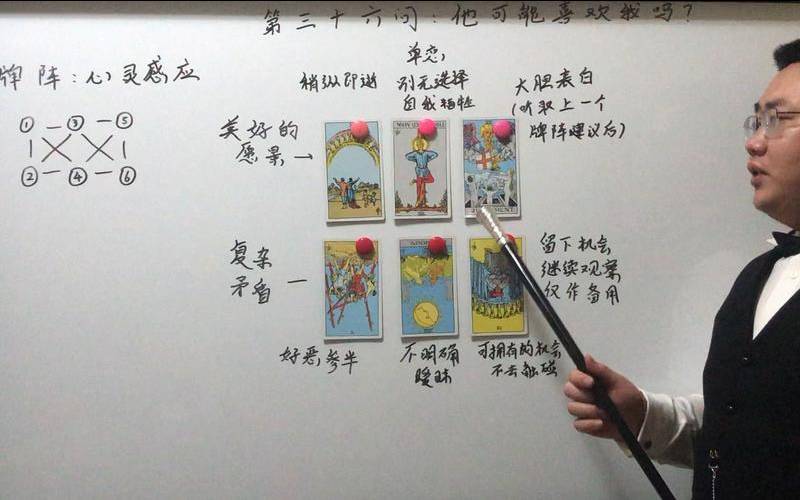 第三十六问：他可能喜欢我吗？
牌阵：心灵感应
① — ③ — ⑤
② — ④ — ⑥
单恋，
稍纵即逝
别无选择
自我牺牲
大胆表白
（听取上一个
牌阵建议后）
美好的
愿景→
JUDGEMENT
复杂
矛盾 —
留下机会
继续观察
仅作备用
好恶参半
不明确
暧昧
可拥有的机会
不去触碰